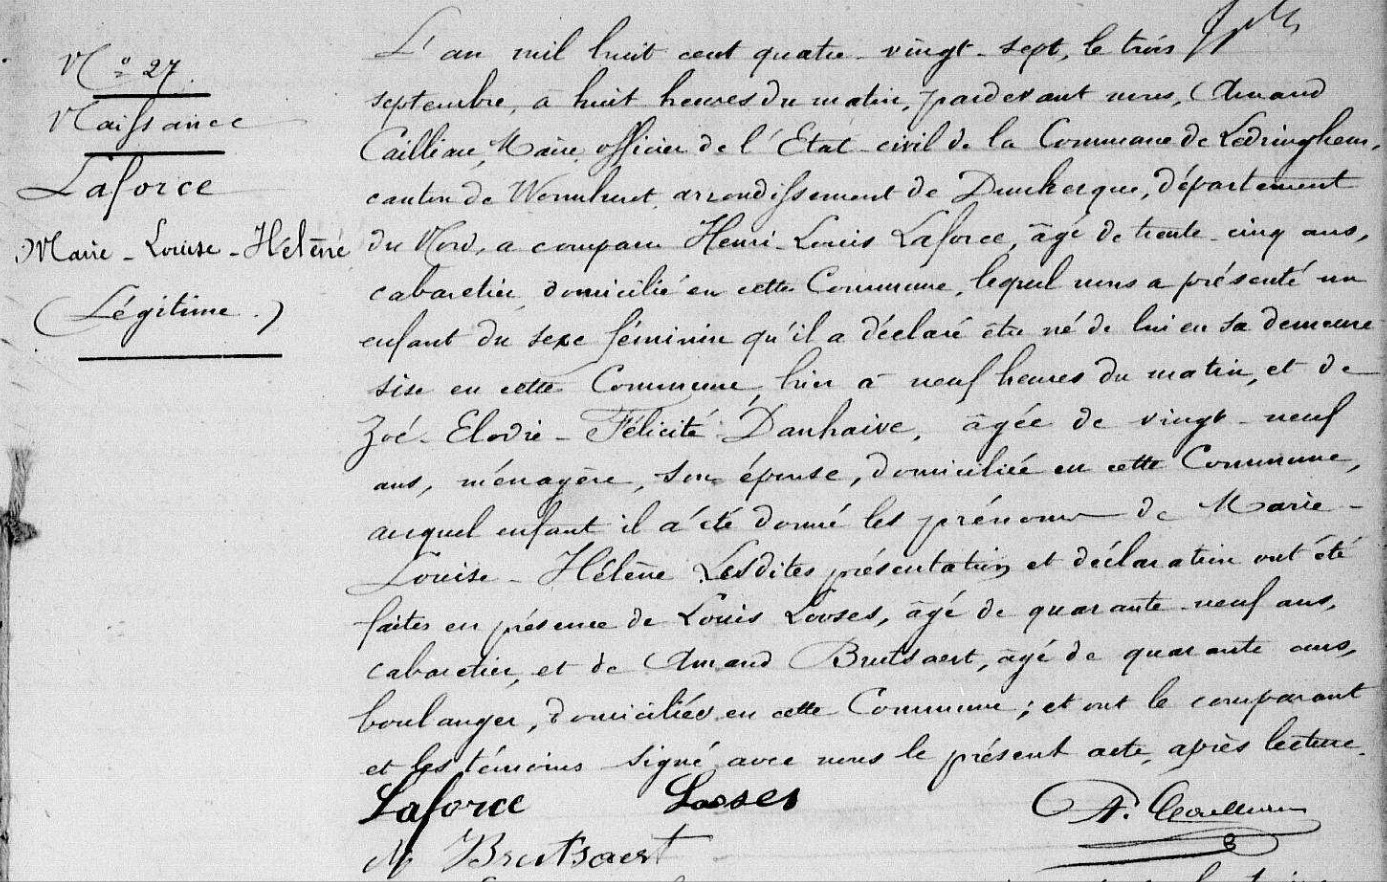 N° 27.
Naissance
Laforce
Marie - Louise - Hélène
(Légitime.)
L'an mil huit cent quatre-vingt-sept, le trois
septembre, à huit heures du matin, pardevant nous, Amand
Cailliau, Maire, officier de l'Etat civil de la Commune de Ledringhem,
canton de Wormhout, arrondissement de Dunkerque, département
du Nord, a comparu Henri-Louis Laforce, âgé de trente-cinq ans,
cabaretier, domicilié en cette Commune, lequel nous a présenté un
enfant du sexe féminin qu'il a déclaré être né de lui en sa demeure
sise en cette Commune, hier à neuf heures du matin, et de
Zoé-Elodie-Félicité Danhaive, âgée de vingt-neuf
ans, ménagère, son épouse, domiciliée en cette Commune,
auquel enfant il a été donné les prénoms de Marie-
Louise-Hélène. Lesdites présentation et déclaration ont été
faites en présence de Louis Looses, âgé de quarante-neuf ans,
cabaretier, et de Amand Brutsaert, âgé de quarante ans,
boulanger, domiciliés en cette Commune ; et ont le comparant
et les témoins signé avec nous le présent acte, après lecture.
Laforce Looses A. Cailliau
Brutsaert